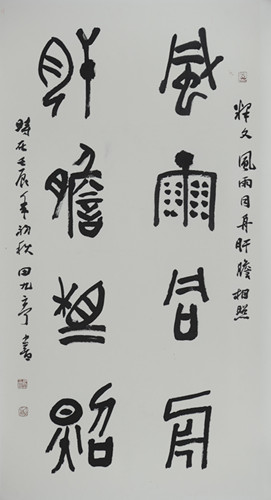 風雨同舟
肝膽相照
釋文 風雨同舟肝膽相照
時在壬辰年初秋 田九亭書